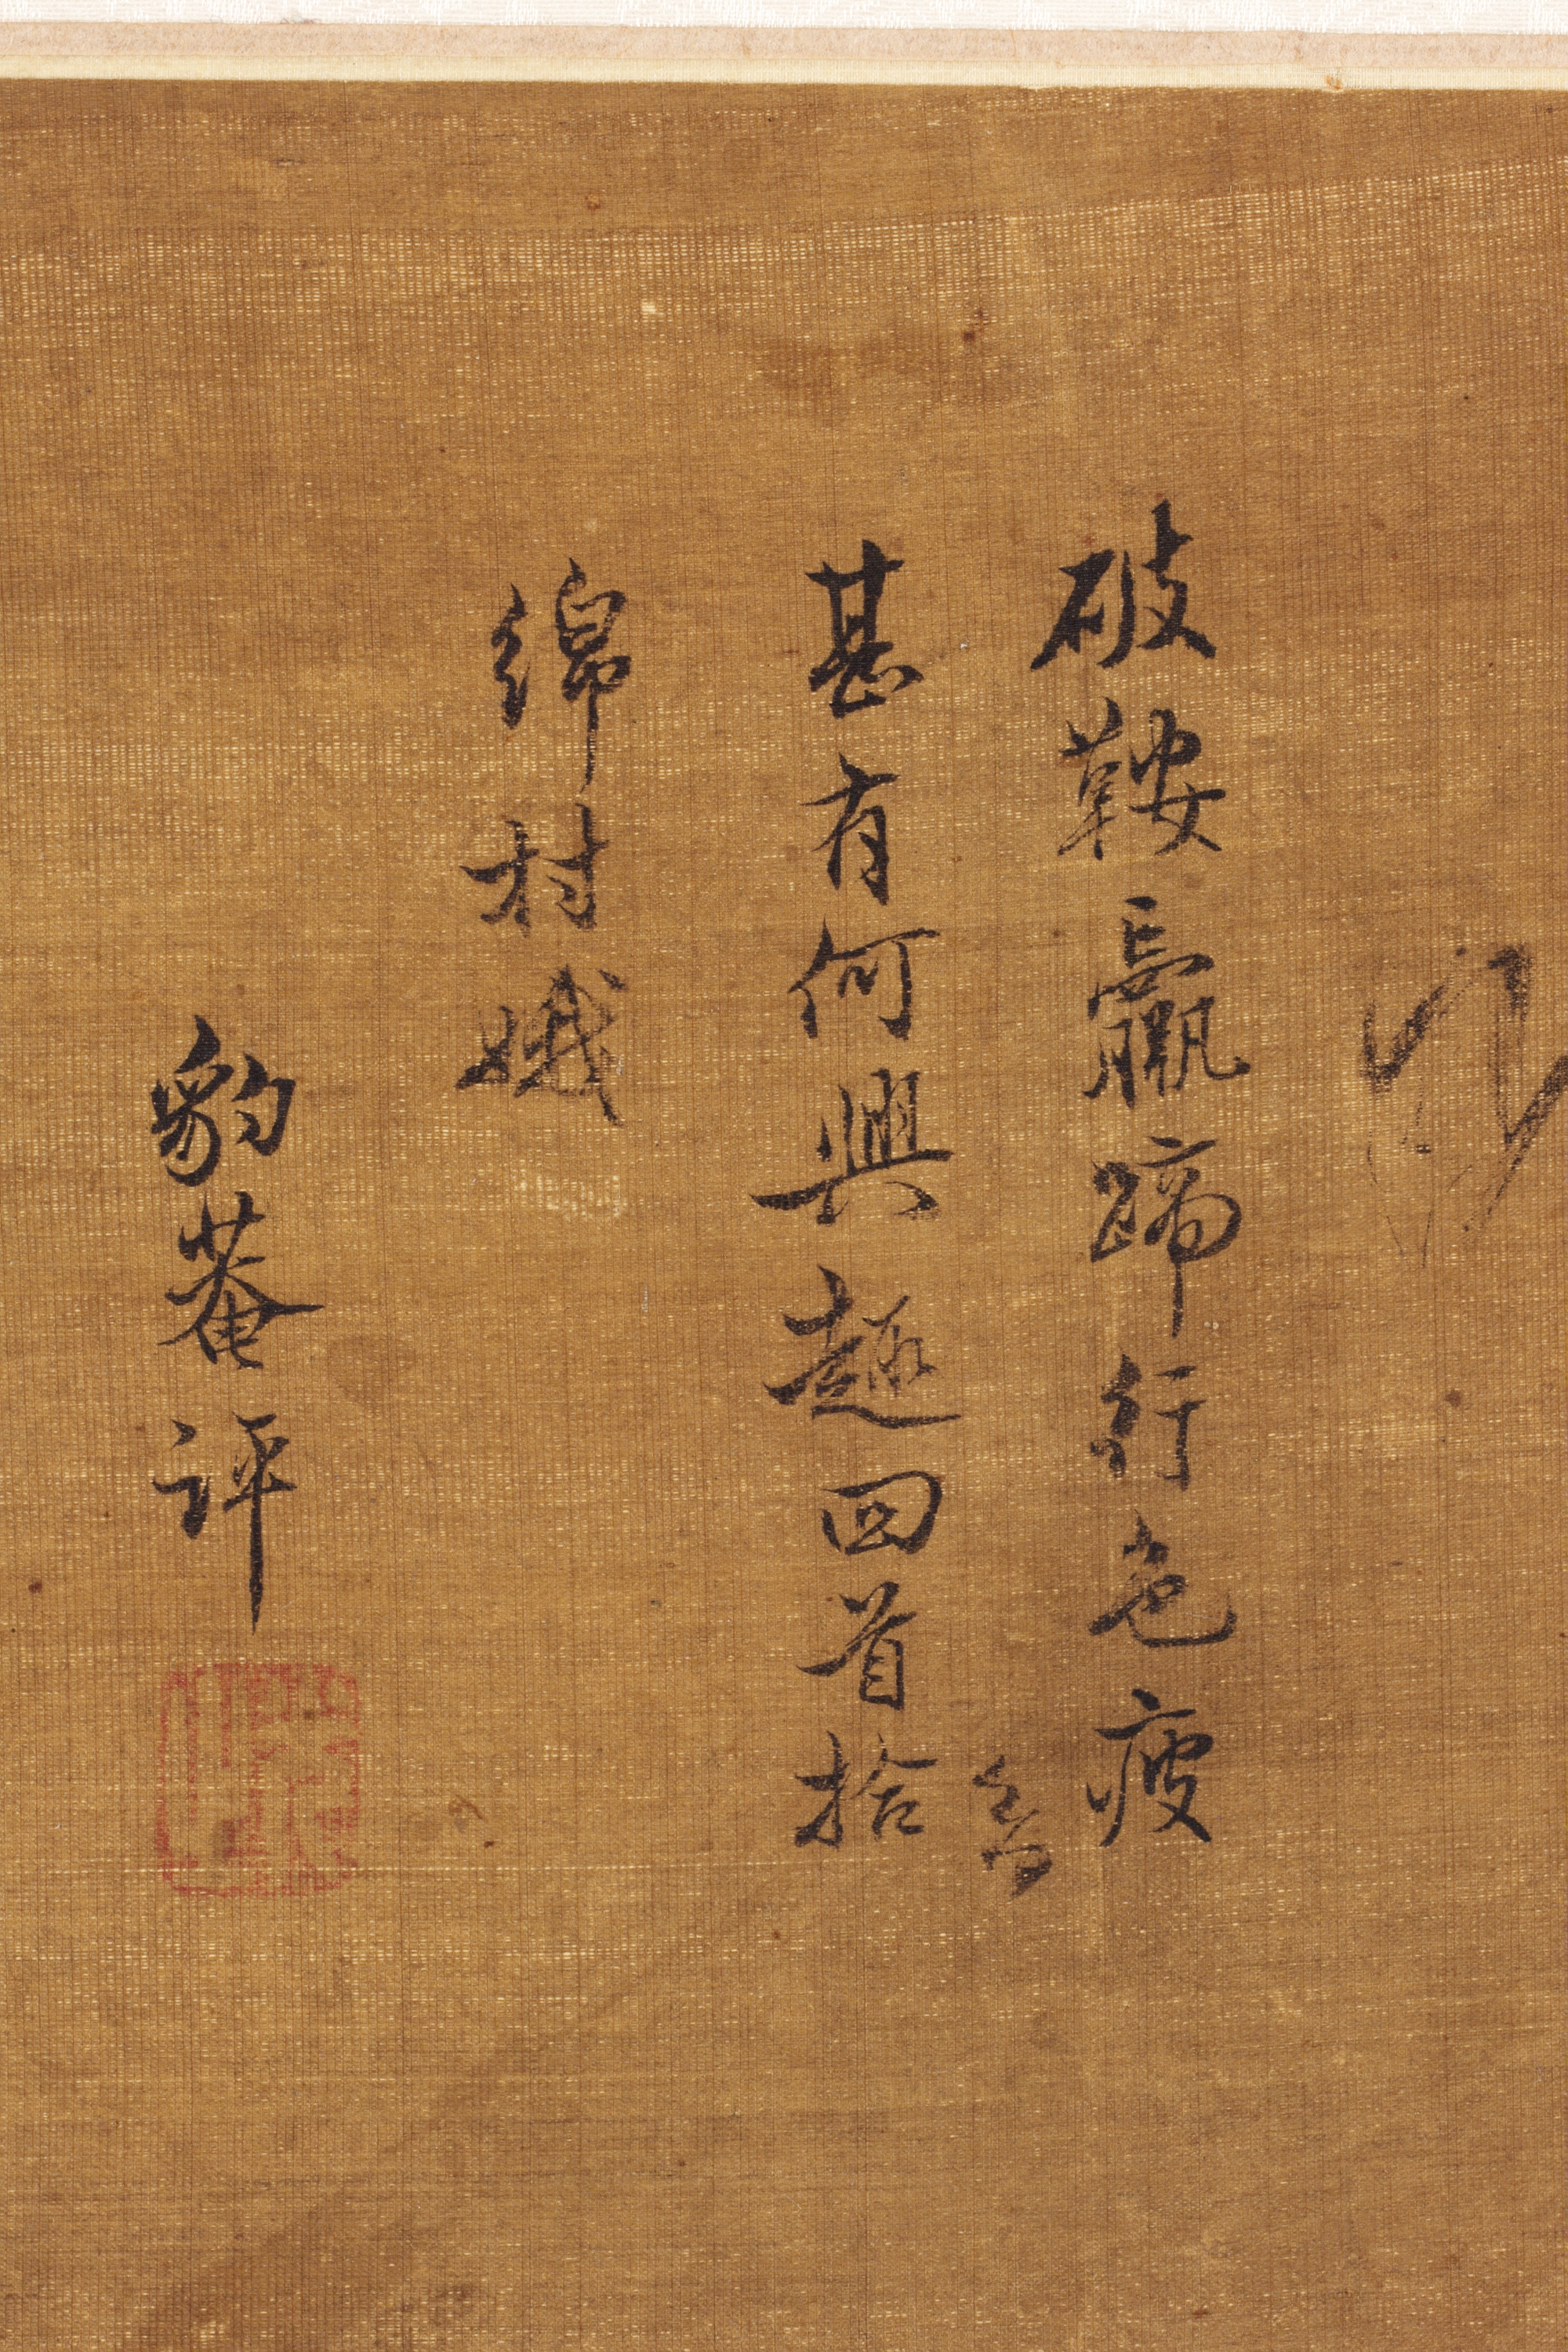 破鞍羸蹄行色瘦
甚有何興趣回首拾
綿村娥
豹菴評